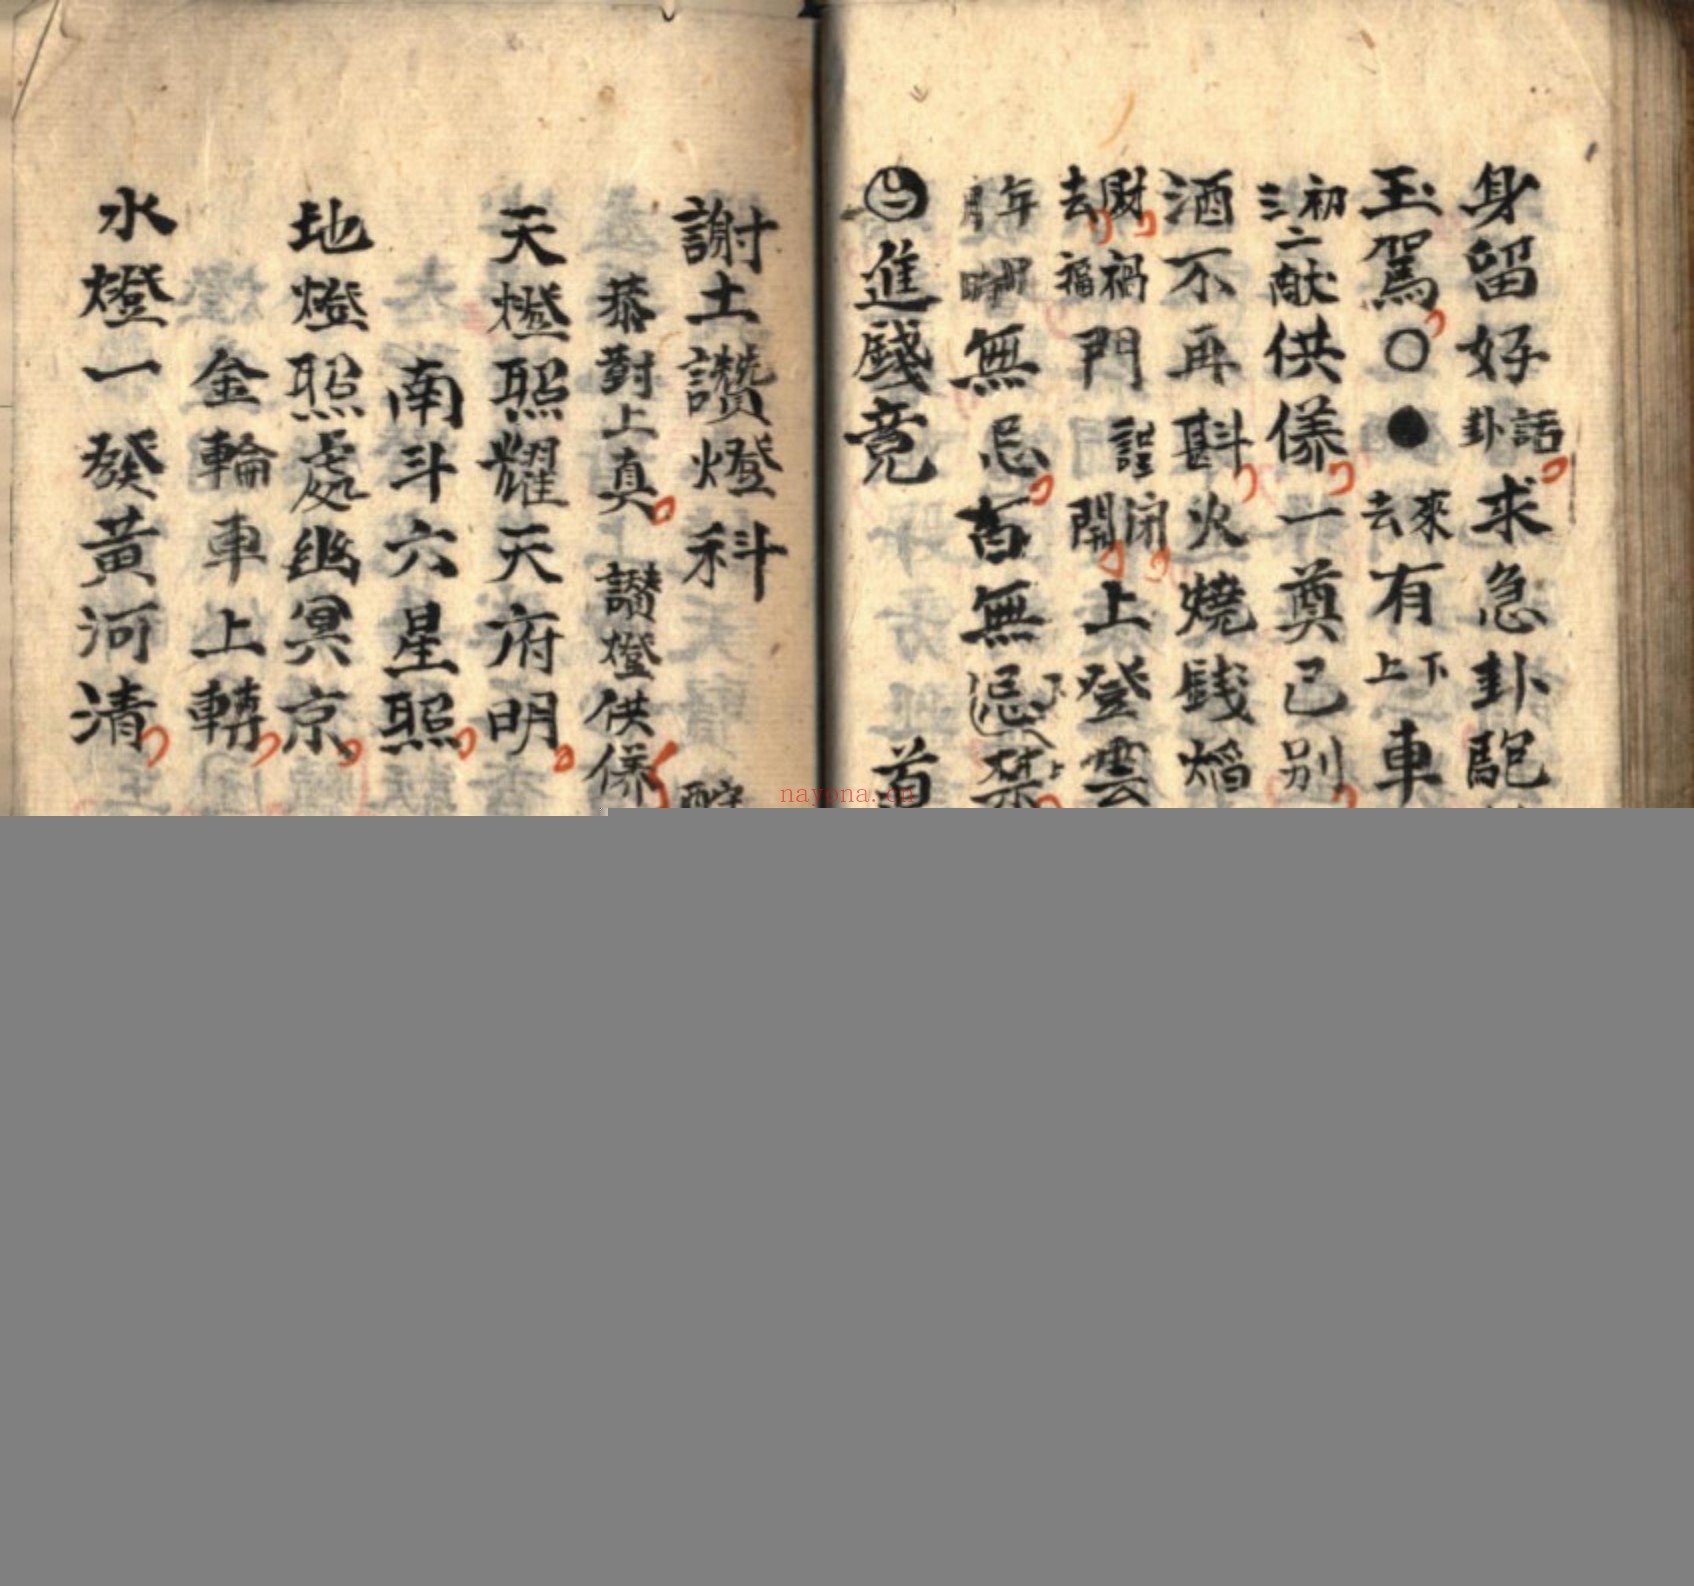 身留好話卦求急卦駞
玉駕○●來去有下上車
初二三献供儀一奠已別
酒不再斟火燒錢焰
財去禍福門謹閉開上登雲
年月無忌百無忌禁
進錢竟 首
謝土讚燈科
恭對上真 讃燈供儀
天燈照耀天府明
南斗六星照
地燈照處幽冥京
金輪車上轉
水燈一發黃河清
nayona.cn